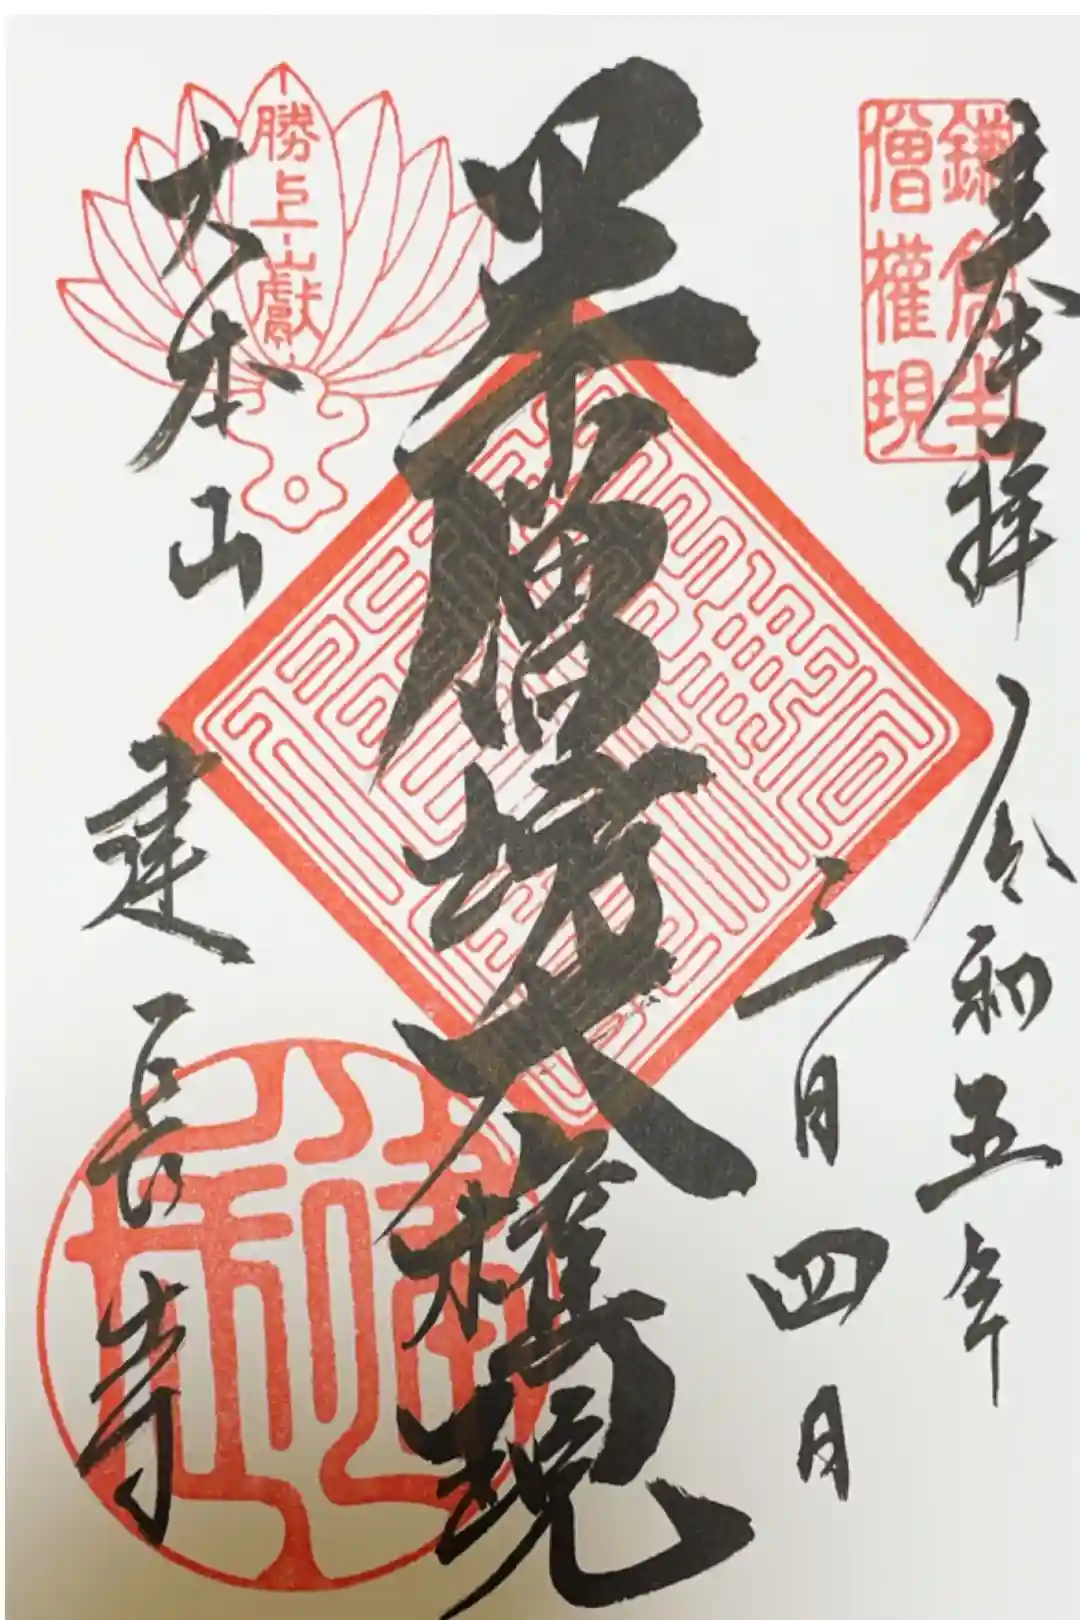 奉拝 令和五年
鎌倉半
僧權現
三月四日
半僧坊大權現
勝上巘
大本山 建長寺